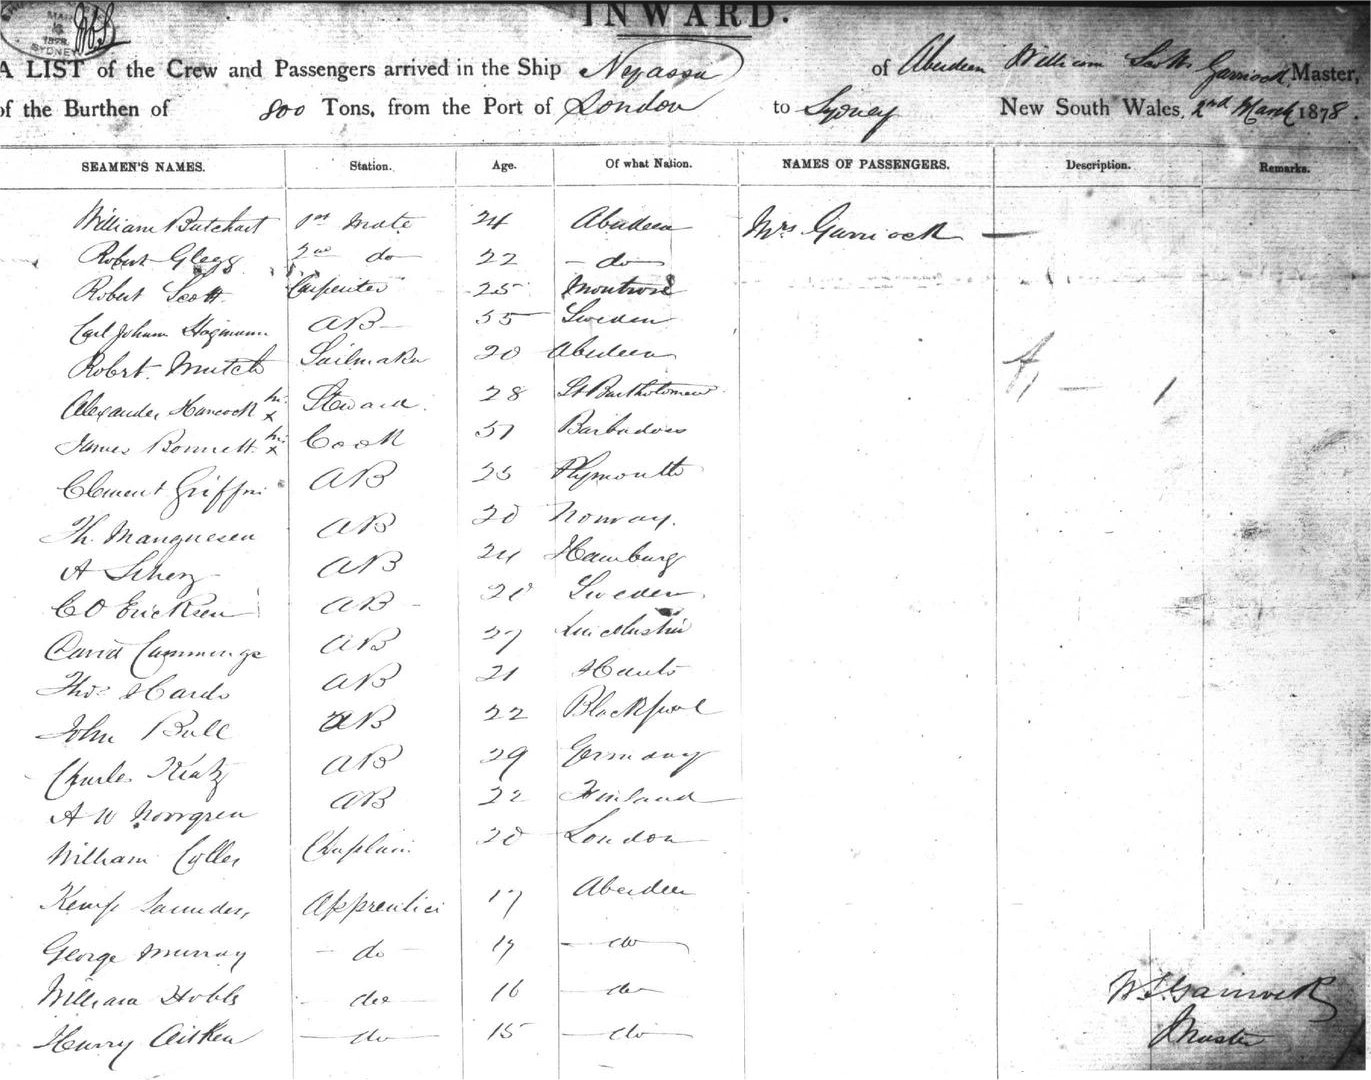 INWARD.
MAR
1878
SYDNEY
A LIST of the Crew and Passengers arrived in the Ship of Aberdeen William Garriock Master,
of the Burthen of 800 Tons, from the Port of London to Sydney New South Wales, 2nd March 1878.
SEAMEN'S NAMES. Station. Age. Of what Nation. NAMES OF PASSENGERS. Description. Remarks.
William Butchart 1st Mate 24 Aberdeen Mrs Garriock —
Robert Glegg 2nd do 22 do
Robert Scott Carpenter 25 Montrose
Carl Johann Hagmann AB Sweden
Robert Mutch Sailmaker 20 Aberdeen
Alexander Hancock his x Steward 28 St Bartholomew
James Bonnett his x Cook Barbadoes
Clement Griffin AB Plymouth
Th. Mangnesen AB 20 Norway.
A AB 24 Hamburg
C O Ericksen AB Sweden
David Cummings AB 27
Thos AB 21 Hants
John Bull AB 22 Blackpool
Charles AB 29 Germany
A W Norrgren AB 22 Finland
William Chaplain 20 London
Kemp Saunders, Apprentice 17 Aberdeen
George Murray do 17 do
William Hobbs do 16 do
Harry Aitken do 15 do
W. S. Garriock
Master